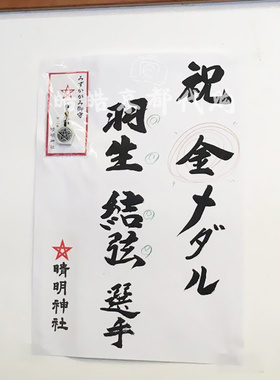 祝 金メダル
羽生 結弦 選手
晴明神社
みずかがみ御守
晴明神社